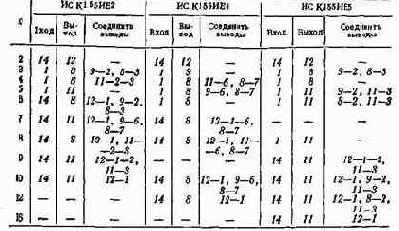 ИС К155ИЕ2 ИС К155ИЕ4 ИС К155ИЕ5
Вход Вы-ход Соединить выводы Вход Выход Соединить выводы Вход Выход Соединить выводы
2 14 12 — 14 12 — 14 12 —
3 1 8 9—2, 8—3 1 8 — 1 8 9—2, 8—3
4 1 8 11—2—3 1 8 11—6, 8—7 1 8 —
5 1 11 — 1 8 9—6, 8—7 1 11 9—2, 11—3
6 14 8 12—1, 9—2, 8—3 1 8 — 1 11 8—2, 11—3
7 14 11 12—1, 9—6, 8—7 14 8 12—1—6, 8—7
8 14 11— —2—3 14 8 11— —6, 8—7 1 11 —
9 14 11 12—1—2, 11—3 — — — 14 11 12—1—2, 11—3
10 14 12—1 14 8 12—1, 9—6, 8—7 14 11 12—1, 9—2, 11—3
12 — — — 14 8 12—1 14 11 12—1, 8—2, 11—3
16 — — — — — — 14 11 12—1